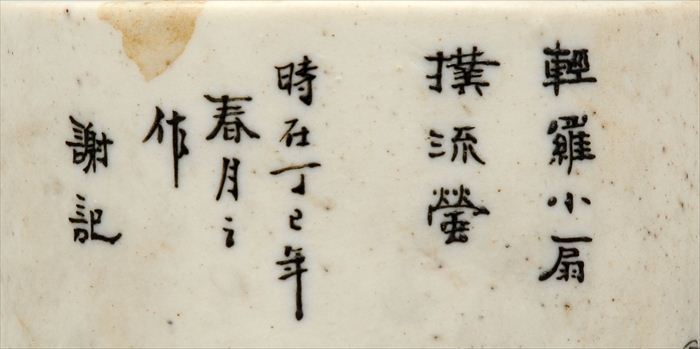 輕羅小扇
撲流螢
時在丁巳年
春月之
作
謝記